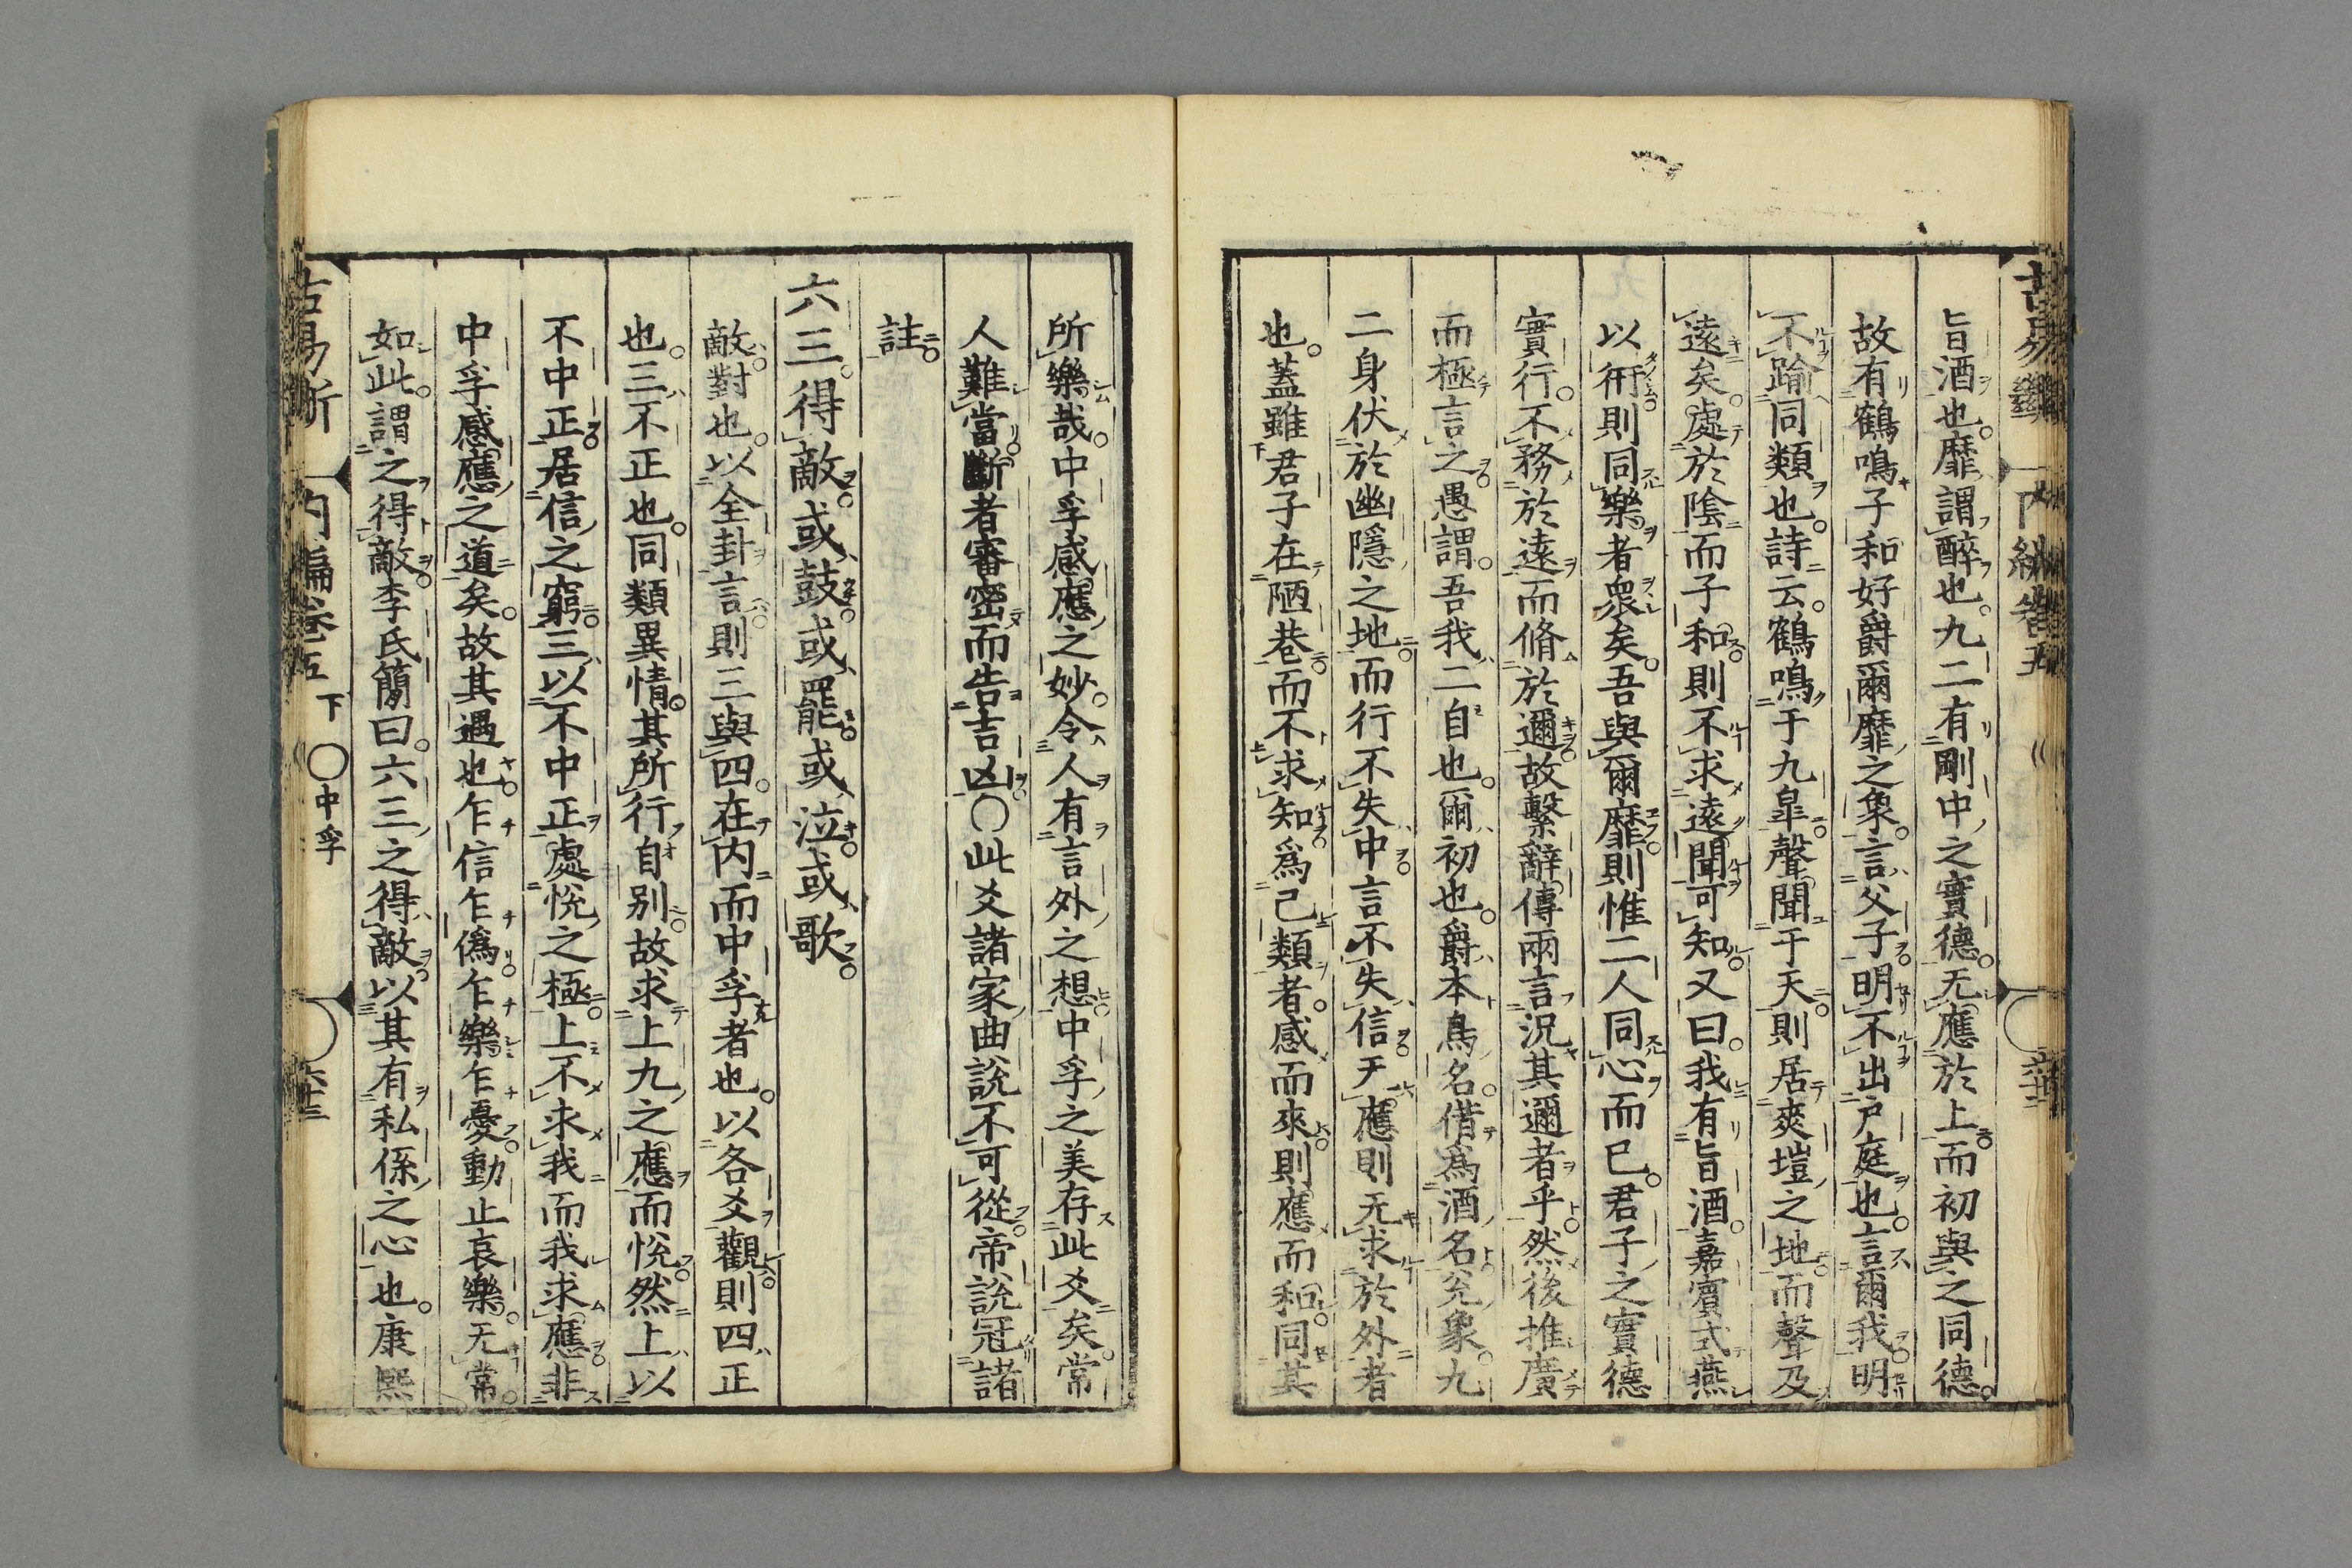 旨酒也。靡謂醉也。九二有剛中之實德。无應於上而初與之同德。
故有鶴鳴子和好爵爾靡之象。言父子明不出戸庭也。言爾我明
不踰同類也。詩云。鶴鳴于九皐聲聞于天則居爽塏之地而聲及
遠矣。處於陰而子和則不求遠聞可知又曰。我有旨酒。嘉賓式燕
以衎則同樂者衆矣。吾與爾靡則惟二人同心而已。君子之實德
實行。不務於遠而脩於邇故繫辭傳兩言況其邇者乎然後推廣
而極言之愚謂。吾我二自也。爾初也。爵本鳥名。借爲酒名兊象。九
二身伏於幽隱之地而行不失中言不失信无應則无求於外者
也。蓋雖君子在陋巷而不求知爲己類者。感而來則應而和。同其
所樂哉。中孚感應之妙。令人有言外之想中孚之美存此爻矣。常
人難當斷者審密而告吉凶〇此爻諸家曲說不可從帝說冠諸
註。
六三。得敵。或鼓。或罷。或泣。或歌。
敵對也。以全卦言則三與四。在内而中孚者也。以各爻觀則四正
也。三不正也。同類異情。其所行自別故求上九之應而悅然上以
不中正。居信之窮三以不中正處悅之極。上不求我而我求應非
中孚感應之道矣。故其遇也乍信乍僞乍樂乍憂動止哀樂。无常
如此。謂之得敵。李氏簡曰。六三之得敵以其有私係之心也。康熙
古易斷 内編卷五 下 〇中孚 六十三